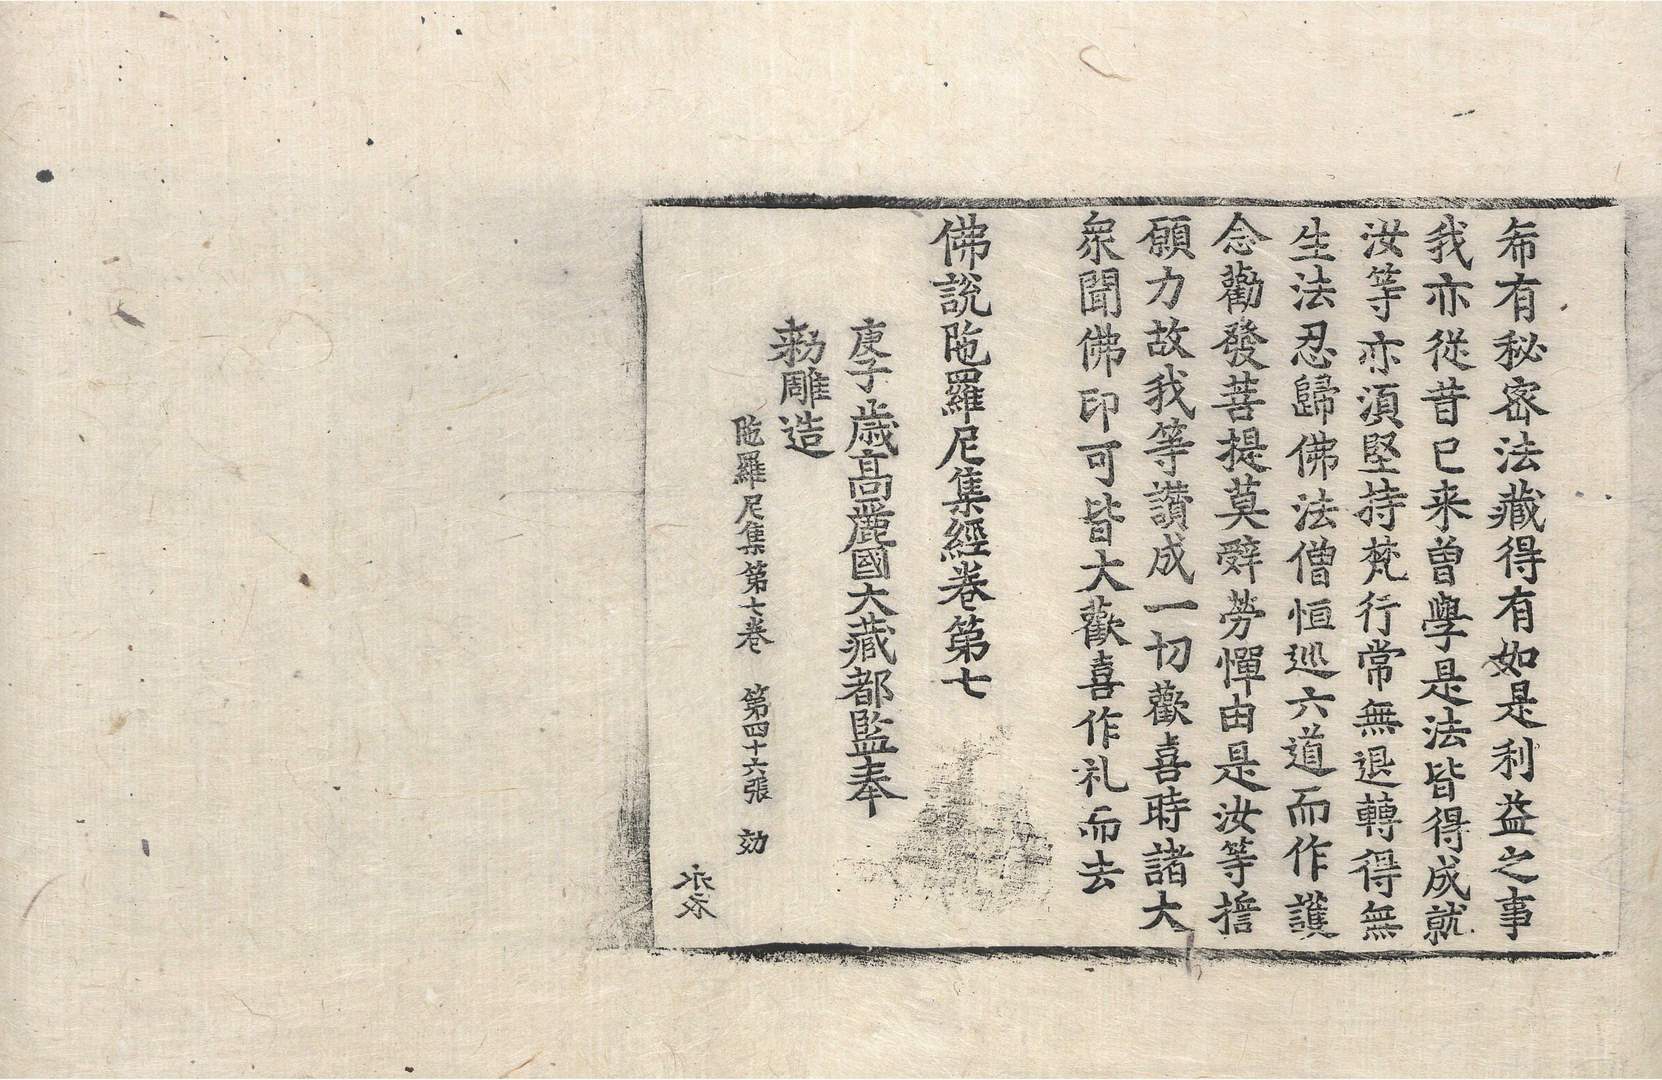 希有秘密法藏得有如是利益之事
我亦從昔已来曾學是法皆得成就
汝等亦須堅持梵行常無退轉得無
生法忍歸佛法僧恒巡六道而作護
念勸發菩提莫辝勞憚由是汝等擔
願力故我等讚成一切歡喜時諸大
衆聞佛印可皆大歡喜作礼而去
佛說陁羅尼集經卷第七
庚子歳高麗國大藏都監奉
勑雕造
陁羅尼集第七卷 第四十六張 効